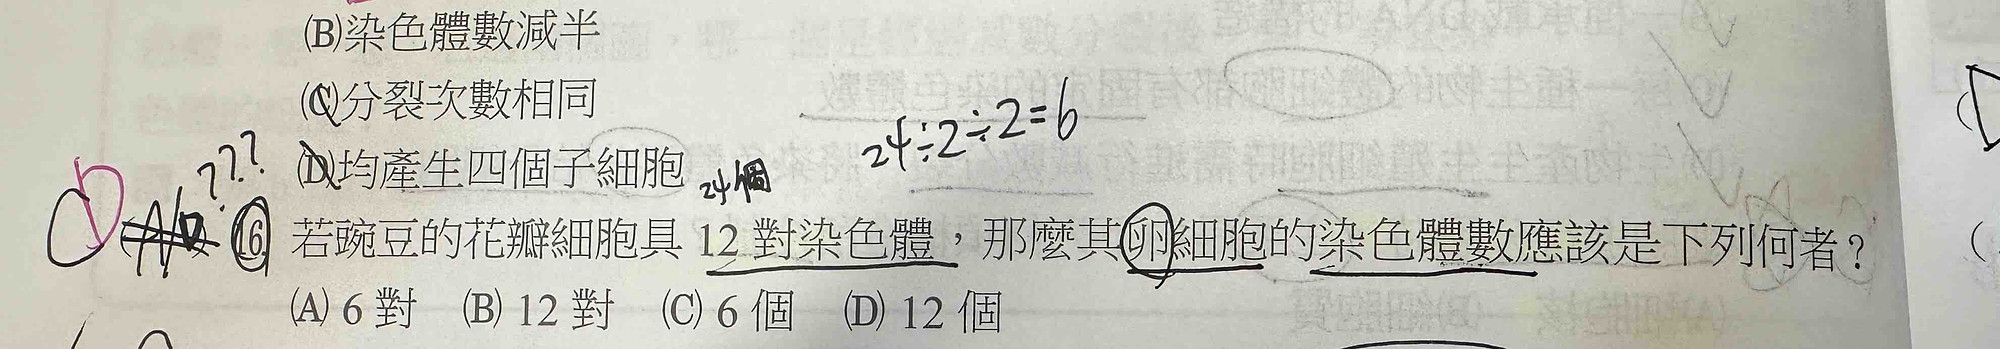 (B)染色體數減半
(C)分裂次數相同
24÷2÷2=6
(D)均產生四個子細胞
24個
D ???
16. 若豌豆的花瓣細胞具 12 對染色體，那麼其卵細胞的染色體數應該是下列何者？
(A) 6 對 (B) 12 對 (C) 6 個 (D) 12 個